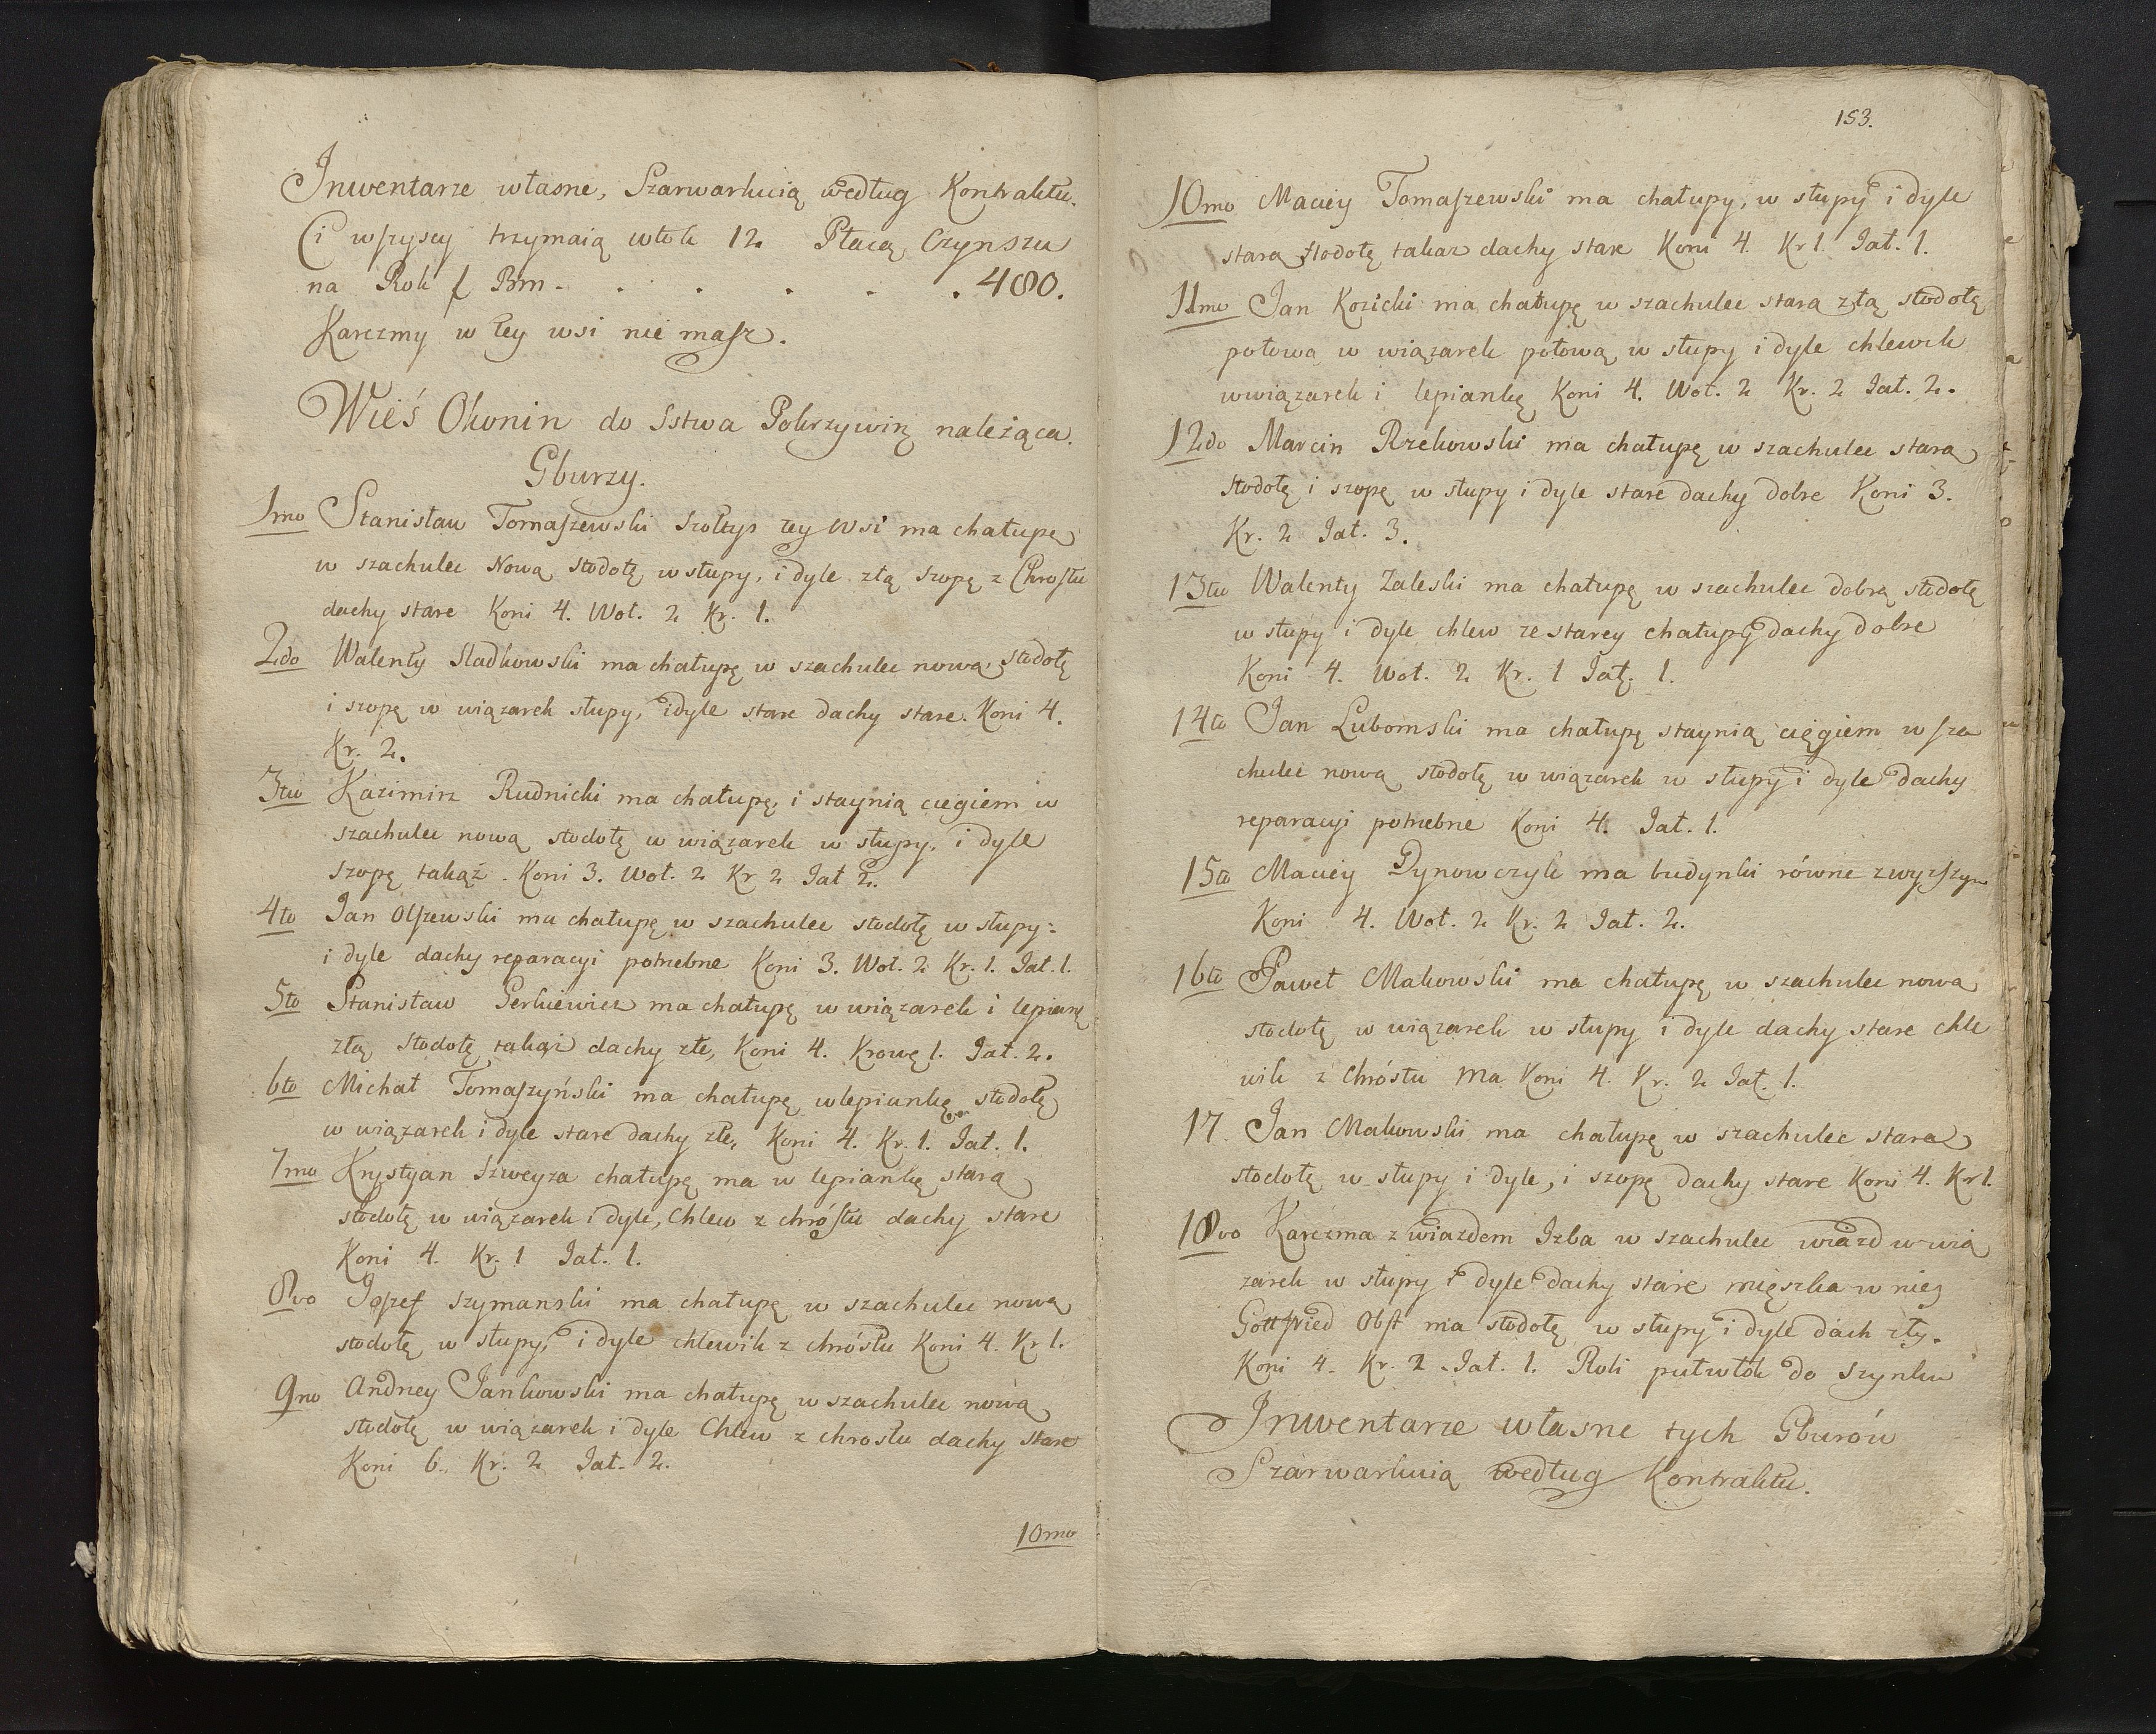 Inwentarze własne, Szarwarkuią według Kontraktu.
Ci wszyscy trzymaią włok 12 Płacą Czynszu
na Rok f Prm - . . . . . 480.
Karczmy w tey wsi nie masz.
Wieś Okonin do Sstwa Pokrzywin należąca.
Gburzy.
1mo Stanisław Tomaszewski Szołtys tey wsi ma chałupę
w szachulec Nową stodołę w słupy, i dyle złą szopę z Chrostu
dachy stare Koni 4. Woł. 2 Kr. 1.
2do Walenty Sladkowski ma chałupę w szachulec nową stodołę
i szopę w wiązarek słupy, i dyle stare dachy stare. Koni 4.
Kr. 2.
3tio Kazimirz Rudnicki ma chałupę, i staynią cięgiem w
szachulec nową stodołę w wiązarek w słupy, i dyle
szopę takąż. Koni 3. Woł. 2 Kr 2 Jał 2.
4to Jan Olszewski ma chałupę w szachulec stodołę w słupy:
i dyle dachy reparacyi potrzebne Koni 3. Woł. 2 Kr. 1. Jał. 1.
5to Stanisław Perkiewicz ma chałupę w wiązarek i lepiankę
złą stodołę takąż dachy złe, Koni 4. Krowę 1. Jał. 2.
6to Michał Tomaszyński ma chałupę w lepiankę stodołę
w wiązarek i dyle stare dachy złe, Koni 4. Kr. 1. Jał. 1.
7mo Krystyan Szweyza chałupę ma w lepiankę starą
stodołę w wiązarek i dyle, Chlew z chróstu dachy stare
Koni 4. Kr. 1 Jał. 1.
8vo Jozef Szymanski ma chałupę w szachulec nową
stodołę w słupy, i dyle chlewik z chróstu Koni 4. Kr 1.
9no Andrzey Jankowski ma chałupę w szachulec nową
stodołę w wiązarek i dyle Chlew z chrostu dachy stare
Koni 6. Kr. 2 Jał. 2.
10mo
153.
10mo Maciey Tomaszewski ma chałupy, w słupy i dyle
starą stodołę takaz dachy stare Koni 4. Kr 1. Jał. 1.
11mo Jan Kozicki ma chałupę w szachulec stara złą stodołę
połową w wiązarek połową w słupy i dyle chlewik
w wiązarek i lepiankę Koni 4. Woł. 2 Kr. 2 Jał. 2.
12do Marcin Rzekowski ma chałupę w szachulec starą
stodołę i szopę w słupy i dyle stare dachy dobre Koni 3.
Kr. 2 Jał. 3.
13tio Walenty Zaleski ma chałupę w szachulec dobrą stodołę
w słupy i dyle chlew ze starey chałupy dachy dobre
Koni 4. Woł. 2 Kr. 1 Jał. 1.
14to Jan Lubomski ma chałupę staynią cięgiem w sza
chulec nową stodołę w wiązarek w słupy i dyle dachy
reparacyi potrzebne Koni 4. Jał. 1.
15to Maciey Dynowczyk ma budynki równe zwyższym
Koni 4. Woł. 2 Kr. 2 Jał. 2.
16to Paweł Makowski ma chałupę w szachulec nową
stodołę w wiązarek w słupy i dyle dachy stare chle
wik z Chróstu Ma Koni 4. Kr. 2 Jał. 1.
17. Jan Makowski ma chałupę w szachulec starą
stodołę w słupy i dyle, i szopę dachy stare Koni 4. Kr 1.
18vo Karczma z wiazdem Izba w szachulec wiazd w wią
zarek w słupy i dyle dachy stare mięszka w niey
Gottfried Obst ma stodołę w słupy i dyle dach zły.
Koni 4. Kr. 2. Jał. 1. Roli pułwłok do Szynku
Inwentarze własne tych Gburów
Szarwarkuią według Kontraktu.